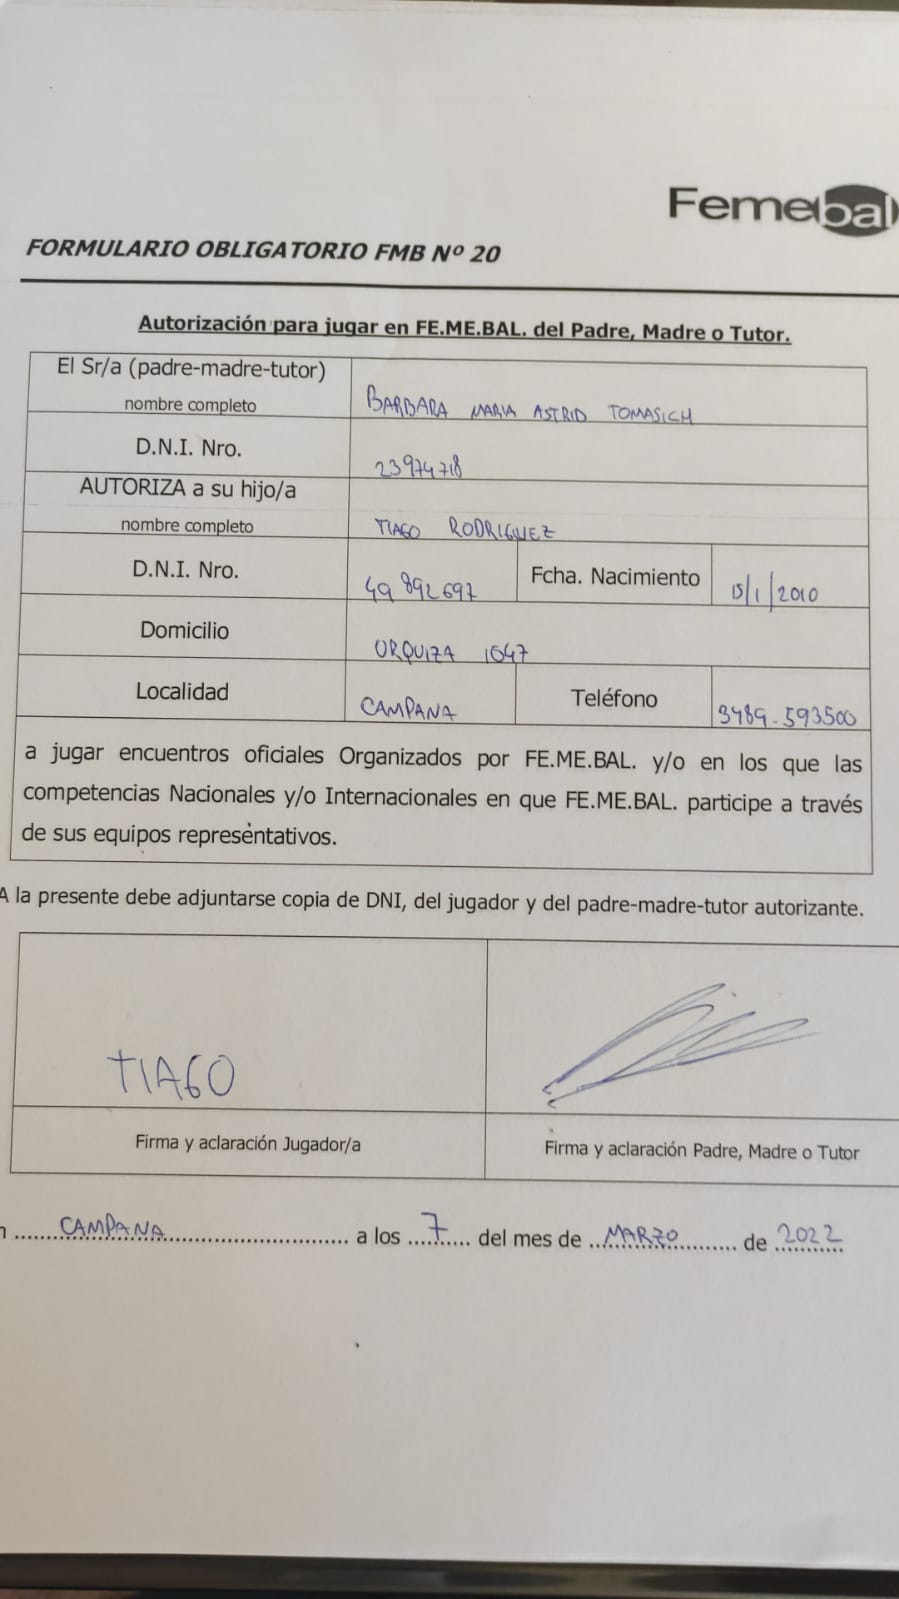 Femebal
FORMULARIO OBLIGATORIO FMB Nº 20
Autorización para jugar en FE.ME.BAL. del Padre, Madre o Tutor.
El Sr/a (padre-madre-tutor)
nombre completo
BARBARA MARIA ASTRID TOMASICH
D.N.I. Nro.
23974718
AUTORIZA a su hijo/a
nombre completo
TIAGO RODRIGUEZ
D.N.I. Nro.
49 892 697
Fcha. Nacimiento
15/1/2010
Domicilio
URQUIZA 1047
Localidad
CAMPANA
Teléfono
3489-593500
a jugar encuentros oficiales Organizados por FE.ME.BAL. y/o en los que las
competencias Nacionales y/o Internacionales en que FE.ME.BAL. participe a través
de sus equipos representativos.
A la presente debe adjuntarse copia de DNI, del jugador y del padre-madre-tutor autorizante.
TIAGO
Firma y aclaración Jugador/a
Firma y aclaración Padre, Madre o Tutor
n ..... CAMPANA ..... a los ... 7 ... del mes de ... MARZO ... de 2022